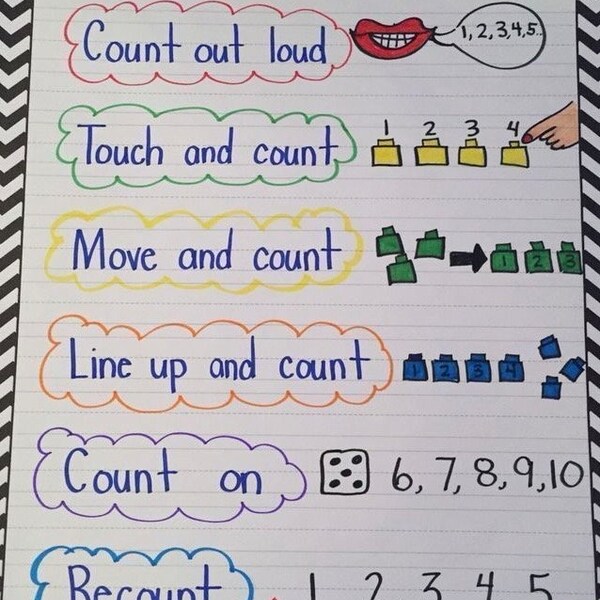 Count out loud 1,2,3,4,5..
Touch and count 1 2 3 4
Move and count 1 2 3
Line up and count 1 2 3 4
Count on 6, 7, 8, 9, 10
Recount 1 2 3 4 5